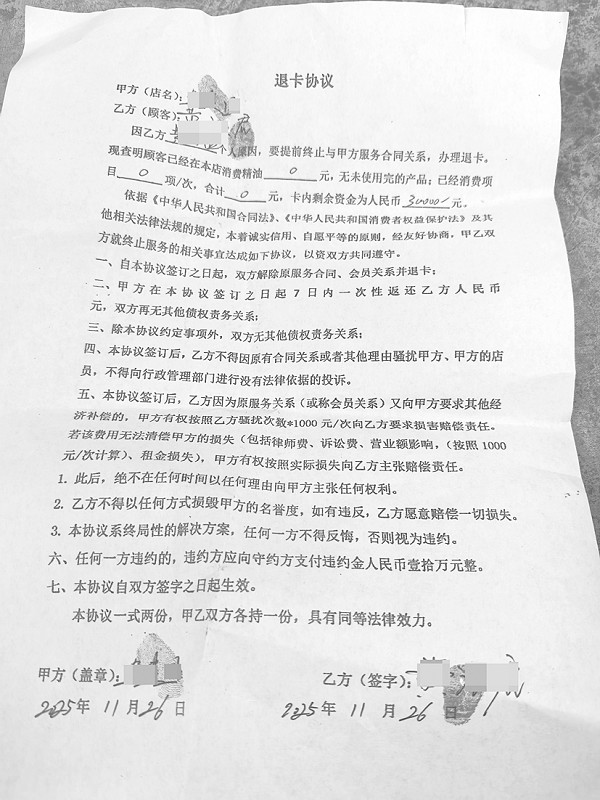 退卡协议
甲方（店名）：
乙方（顾客）：
因乙方 个人原因，要提前终止与甲方服务合同关系，办理退卡。
现查明顾客已经在本店消费精油 0 元，无未使用完的产品；已经消费项
目 0 项/次，合计 0 元，卡内剩余资金为人民币 元。
依据《中华人民共和国合同法》、《中华人民共和国消费者权益保护法》及其
他相关法律法规的规定，本着诚实信用、自愿平等的原则，经友好协商，甲乙双
方就终止服务的相关事宜达成如下协议，以资双方共同遵守。
一、自本协议签订之日起，双方解除原服务合同、会员关系并退卡：
二、甲方在本协议签订之日起7日内一次性返还乙方人民币
元，双方再无其他债权责务关系；
三、除本协议约定事项外，双方无其他债权责务关系；
四、本协议签订后，乙方不得因原有合同关系或者其他理由骚扰甲方、甲方的店
员，不得向行政管理部门进行没有法律依据的投诉。
五、本协议签订后，乙方因为原服务关系（或称会员关系）又向甲方要求其他经
济补偿的，甲方有权按照乙方骚扰次数*1000元/次向乙方要求损害赔偿责任。
若该费用无法清偿甲方的损失（包括律师费、诉讼费、营业额影响，（按照1000
元/次计算）、租金损失），甲方有权按照实际损失向乙方主张赔偿责任。
1. 此后，绝不在任何时间以任何理由向甲方主张任何权利。
2. 乙方不得以任何方式损毁甲方的名誉度，如有违反，乙方愿意赔偿一切损失。
3. 本协议系终局性的解决方案，任何一方不得反悔，否则视为违约。
六、任何一方违约的，违约方应向守约方支付违约金人民币壹拾万元整。
七、本协议自双方签字之日起生效。
本协议一式两份，甲乙双方各持一份，具有同等法律效力。
甲方（盖章）： 乙方（签字）：
2025年 11月26日 2025年 11月26日